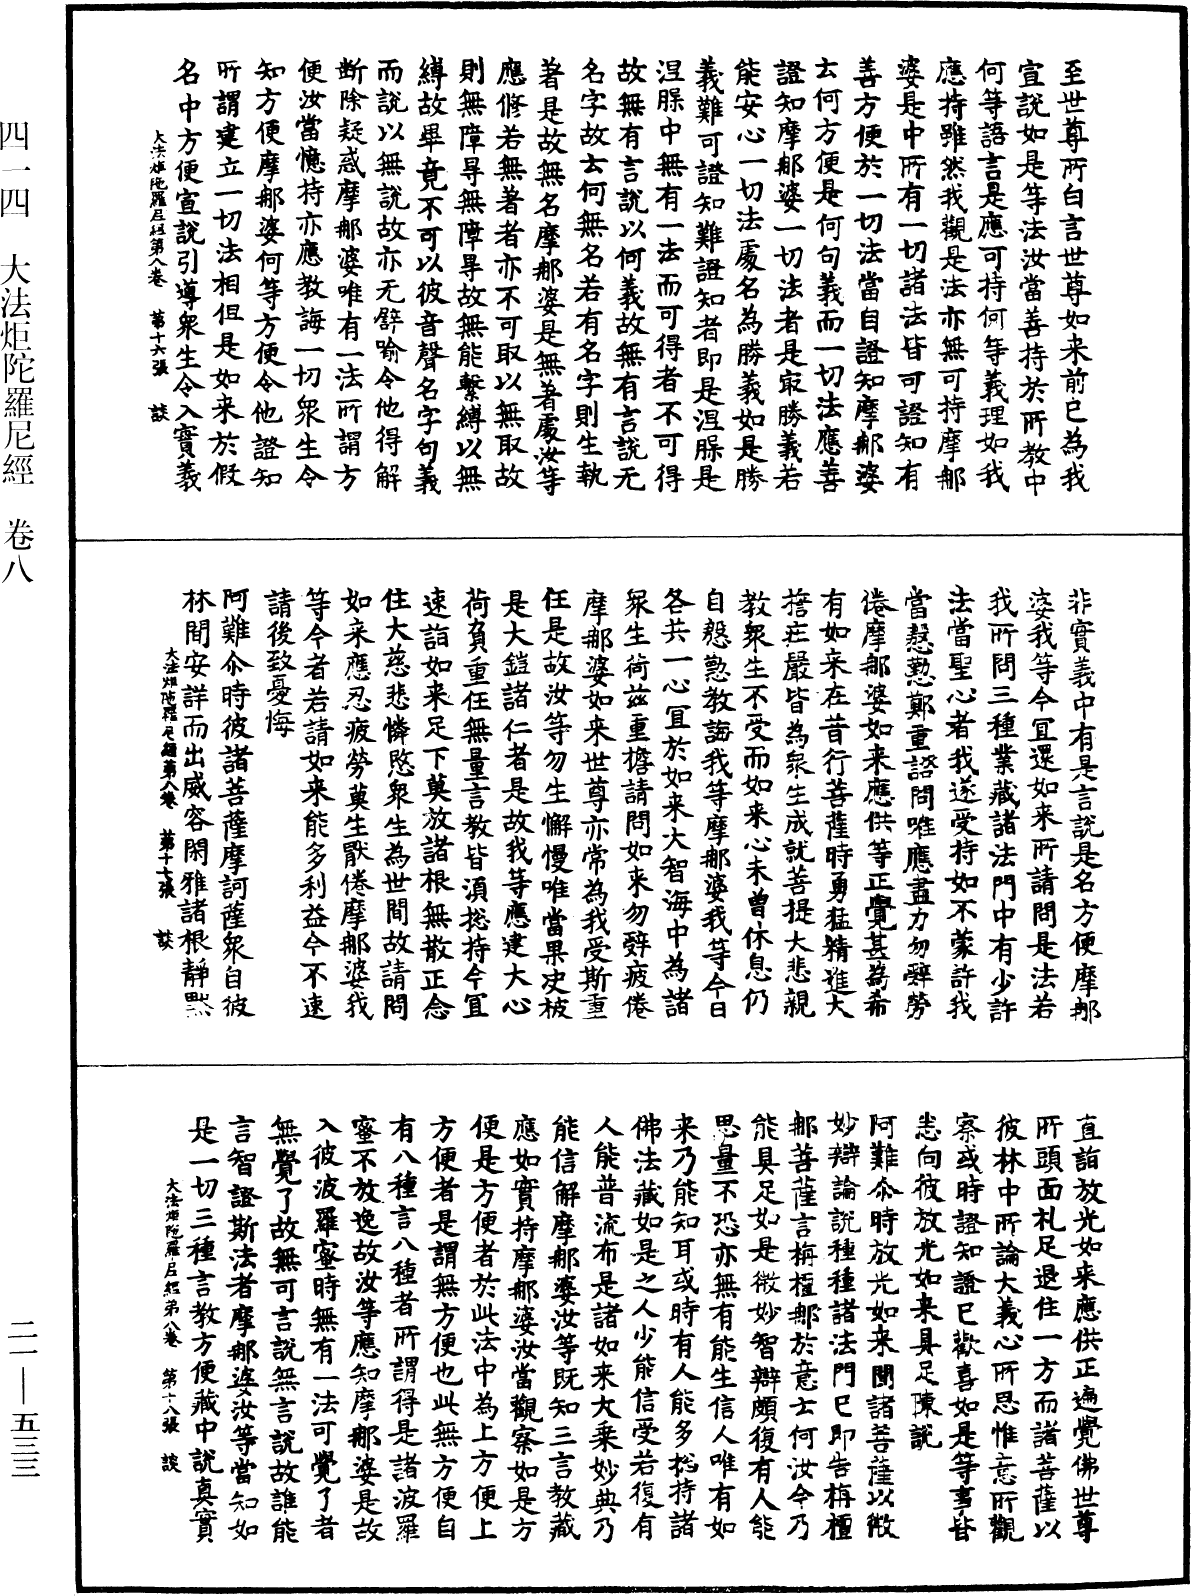 四一四　大法炬陀羅尼經　卷八
二一—五三三
至世尊所白言世尊如来前已為我
宣說如是等法汝當善持於所教中
何等語言是應可持何等義理如我
應持雖然我觀是法亦無可持摩那
婆是中所有一切諸法皆可證知有
善方便於一切法當自證知摩那婆
云何方便是何句義而一切法應善
證知摩那婆一切法者是寂勝義若
能安心一切法處名為勝義如是勝
義難可證知難證知者即是涅槃是
涅槃中無有一法而可得者不可得
故無有言說以何義故無有言說无
名字故云何無名若有名字則生執
著是故無名摩那婆是無著處汝等
應修若無著者亦不可取以無取故
則無障㝵無障㝵故無能繫縛以無
縛故畢竟不可以彼音聲名字句義
而說以無說故亦无譬喻令他得解
断除疑惑摩那婆唯有一法所謂方
便汝當憶持亦應教誨一切衆生令
知方便摩那婆何等方便令他證知
所謂建立一切法相但是如来於假
名中方便宣說引導衆生令入實義
大法炬陀羅尼經第八卷　第十六張　談
非實義中有是言說是名方便摩那
婆我等今冝還如来所請問是法若
我所問三種業藏諸法門中有少許
法當聖心者我遂受持如不蒙許我
當慇懃鄭重諮問唯應盡力勿辭勞
倦摩那婆如来應供等正覺甚為希
有如来在昔行菩薩時勇猛精進大
擔莊嚴皆為衆生成就菩提大悲親
教衆生不受而如来心未曾休息仍
自慇懃教誨我等摩那婆我等今日
各共一心冝於如来大智海中為諸
衆生荷茲重擔請問如来勿辭疲倦
摩那婆如来世尊亦常為我受斯重
任是故汝等勿生懈慢唯當果决被
是大鎧諸仁者是故我等應建大心
荷負重任無量言教皆須捴持今冝
速詣如来足下莫放諸根無散正念
住大慈悲憐愍衆生為世間故請問
如来應忍疲勞莫生厭倦摩那婆我
等今者若請如来能多利益今不速
請後致憂悔
阿難尒時彼諸菩薩摩訶薩衆自彼
林間安詳而出威容閑雅諸根靜默
大法炬陀羅尼經第八卷　第十七張　談
直詣放光如来應供正遍覺佛世尊
所頭面札足退住一方而諸菩薩以
彼林中所論大義心所思惟意所觀
察或時證知證已歡喜如是等事皆
悉向彼放光如来具足陳說
阿難尒時放光如来聞諸菩薩以微
妙辯論說種種諸法門已即告栴檀
那菩薩言栴檀那於意云何汝今乃
能具足如是微妙智辯頗復有人能
思量不恐亦無有能生信人唯有如
来乃能知耳或時有人能多捴持諸
佛法藏如是之人少能信受若復有
人能普流布是諸如来大乗妙典乃
能信解摩那婆汝等既知三言教藏
應如實持摩那婆汝當觀察如是方
便是方便者於此法中為上方便上
方便者是謂無方便也此無方便自
有八種言八種者所謂得是諸波羅
蜜不放逸故汝等應知摩那婆是故
入彼波羅蜜時無有一法可覺了者
無覺了故無可言說無言說故誰能
言智證斯法者摩那婆汝等當知如
是一切三種言教方便藏中說真實
大法炬陀羅尼經第八卷　第十八張　談